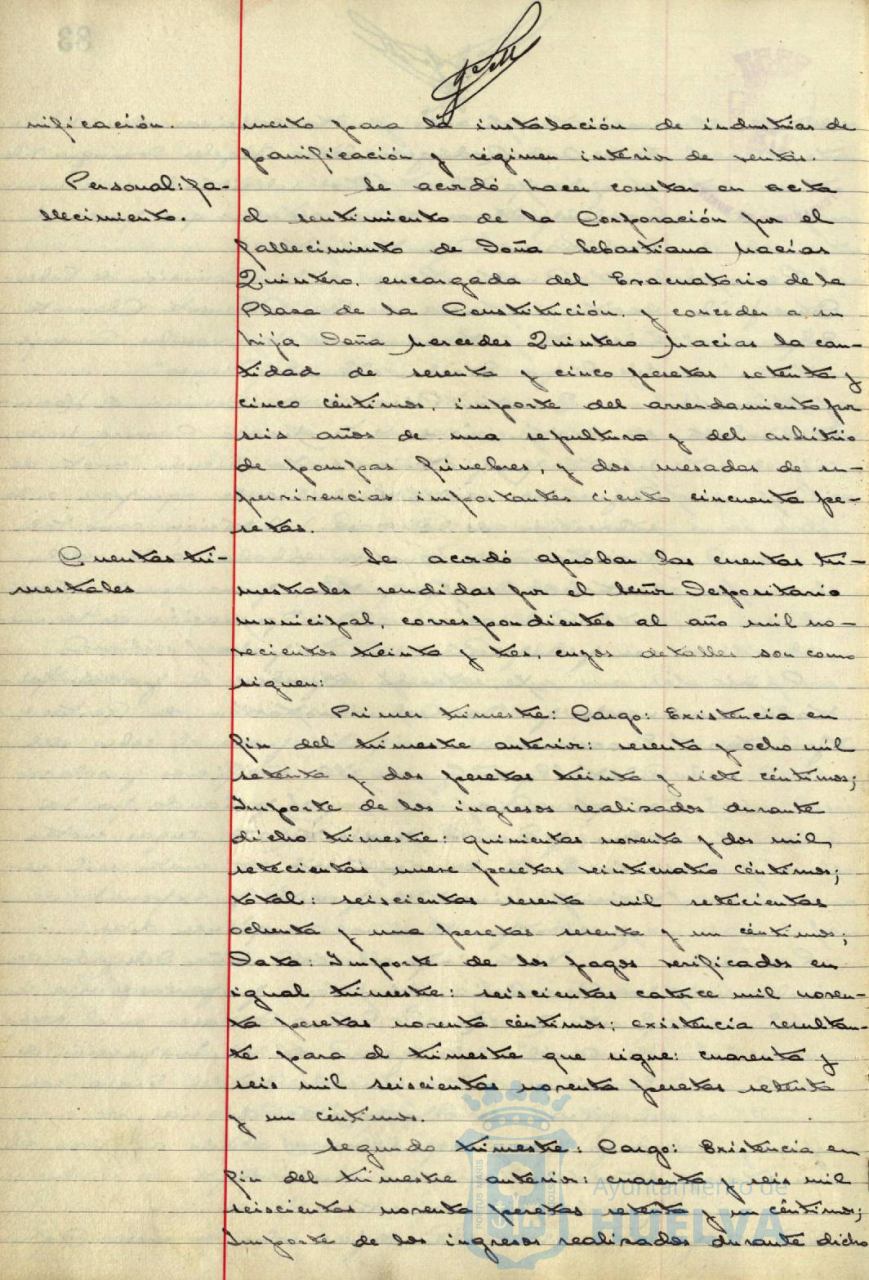 nificación.
mento para la instalación de industrias de
panificación y régimen interior de ventas.
Personal: fa-
llecimiento.
Se acordó hacer constar en acta
el sentimiento de la Corporación por el
fallecimiento de Doña Sebastiana Macías
Quintero, encargada del Evacuatorio de la
Plaza de la Constitución, y conceder a su
hija Doña Mercedes Quintero Macías la can-
tidad de sesenta y cinco pesetas setenta y
cinco céntimos, importe del arrendamiento por
seis años de una sepultura y del arbitrio
de pompas fúnebres, y dos mesadas de su-
pervivencias importantes ciento cincuenta pe-
setas.
Cuentas tri-
mestrales
Se acordó aprobar las cuentas tri-
mestrales rendidas por el Señor Depositario
municipal, correspondientes al año mil no-
vecientos treinta y tres, cuyos detalles son como
siguen:
Primer trimestre: Cargo: Existencia en
fin del trimestre anterior: sesenta y ocho mil
setenta y dos pesetas treinta y siete céntimos;
Importe de los ingresos realizados durante
dicho trimestre: quinientas noventa y dos mil
setecientas nueve pesetas veinticuatro céntimos;
total: seiscientas sesenta mil setecientas
ochenta y una pesetas sesenta y un céntimos;
Data: Importe de los pagos verificados en
igual trimestre: seiscientas catorce mil noven-
ta pesetas noventa céntimos; existencia resultan-
te para el trimestre que sigue: cuarenta y
seis mil seiscientas noventa pesetas setenta
y un céntimos.
Segundo trimestre: Cargo: Existencia en
fin del trimestre anterior: cuarenta y seis mil
seiscientas noventa pesetas setenta y un céntimos;
Importe de los ingresos realizados durante dicho
Ayuntamiento de
HUELVA